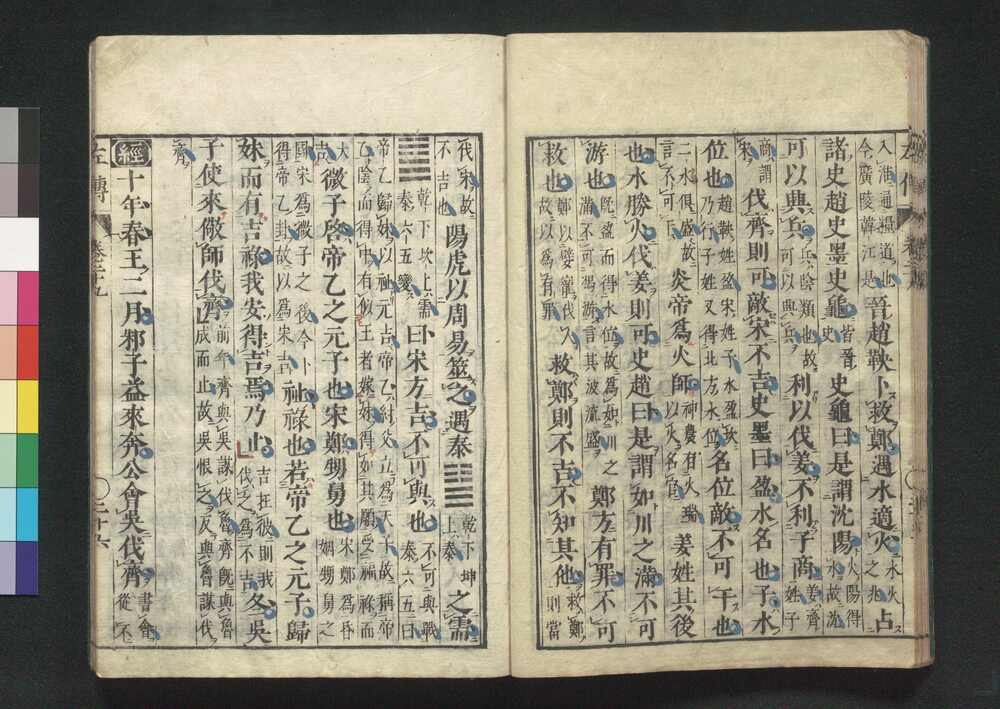 入淮通糧道也今廣陵韓江是晉趙鞅卜救鄭遇水適火水火之兆占
諸史趙史墨史龜皆晉史史龜曰是謂沈陽火陽得水故沈
可以興兵兵陰類也故可以興兵利以伐姜不利子商姜齊姓子
商謂宋伐齊則可敵宋不吉史墨曰盈水名也子水
位也趙鞅姓盈宋姓子水盈坎乃行子姓又得北方水位名位敵不可干也
二水俱盛故言不可干炎帝為火師神農有火瑞以火名官姜姓其後
也水勝火伐姜則可史趙曰是謂如川之滿不可
游也既盈而得水位故為如川之滿不可馮游言其波流盛鄭方有罪不可
救也鄭以嬖寵伐人故以為有罪救鄭則不吉不知其他救鄭則當
伐宋故不吉也陽虎以周易筮之遇泰䷊乾下坤上泰之需
䷄乾下坎上需泰六五變曰宋方吉不可與也不可與戰泰六五曰
帝乙歸妹以祉元吉帝乙紂父立為天子故稱帝乙陰而得中有似王者嫁妹得如其願受福祿而
大吉微子啓帝乙之元子也宋鄭甥舅也宋鄭為昏姻甥舅之
國宋為微子之後今卜得帝乙卦故以為宋吉祉祿也若帝乙之元子歸
妹而有吉祿我安得吉焉乃止吉在彼則我伐之為不吉冬吳
子使來儆師伐齊前年齊與吳謀伐魯齊既與魯成而止故吳恨之反與魯謀伐
齊
經十年春王二月邾子益來奔公會吳伐齊書會從不
左傳 卷二十九 三十六